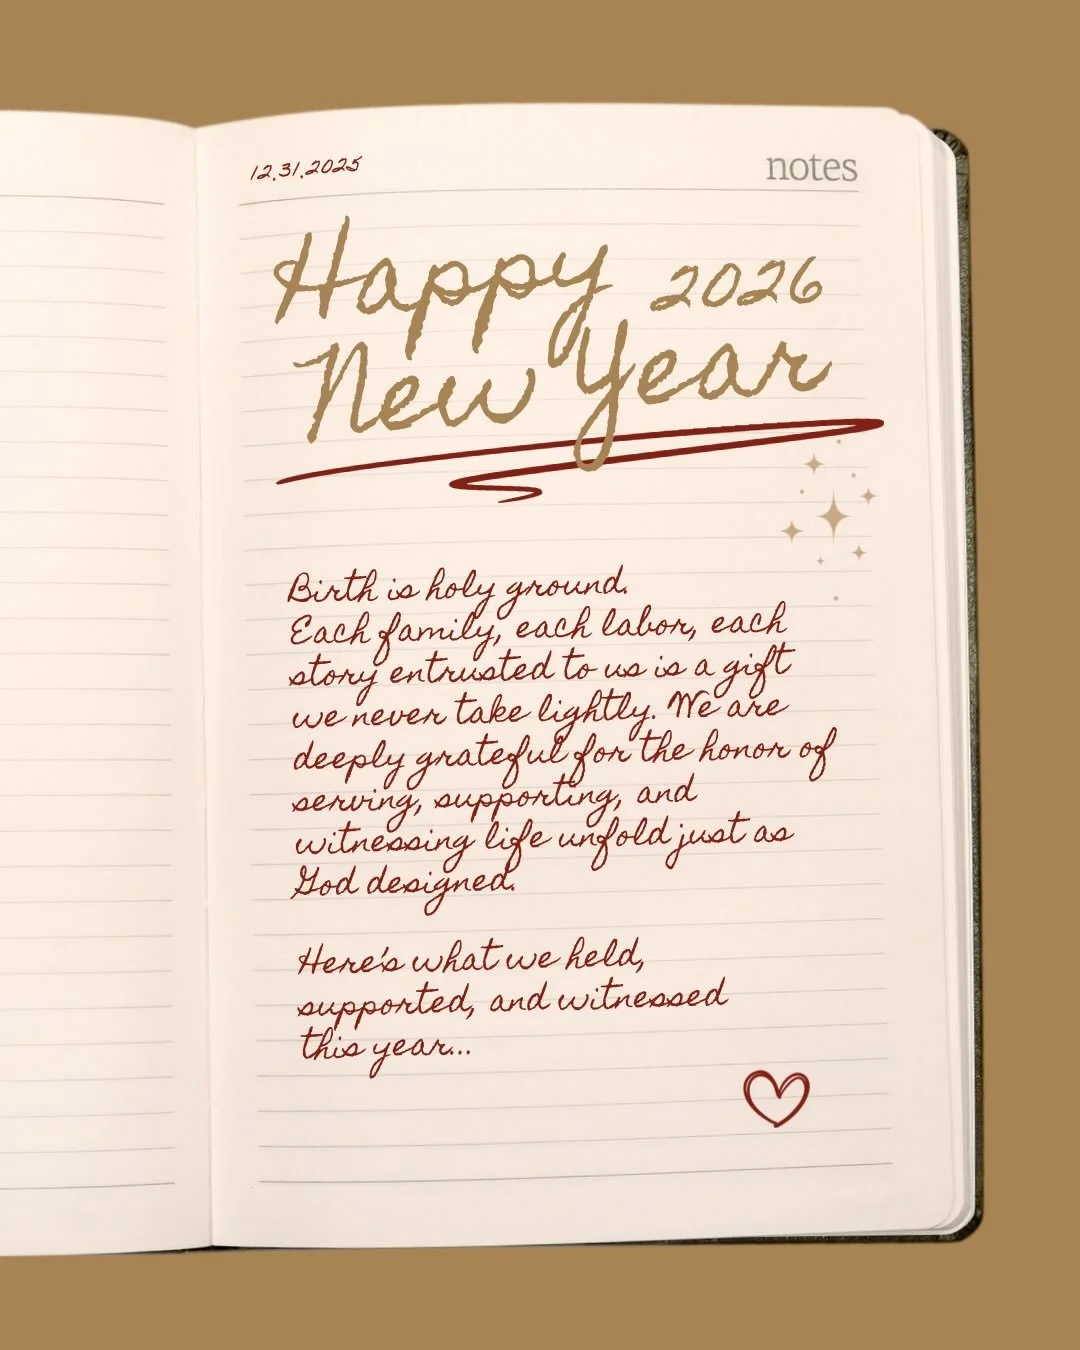 12.31.2025
notes
Happy 2026
New Year
Birth is holy ground.
Each family, each labor, each
story entrusted to us is a gift
we never take lightly. We are
deeply grateful for the honor of
serving, supporting, and
witnessing life unfold just as
God designed.
Here's what we held,
supported, and witnessed
this year...